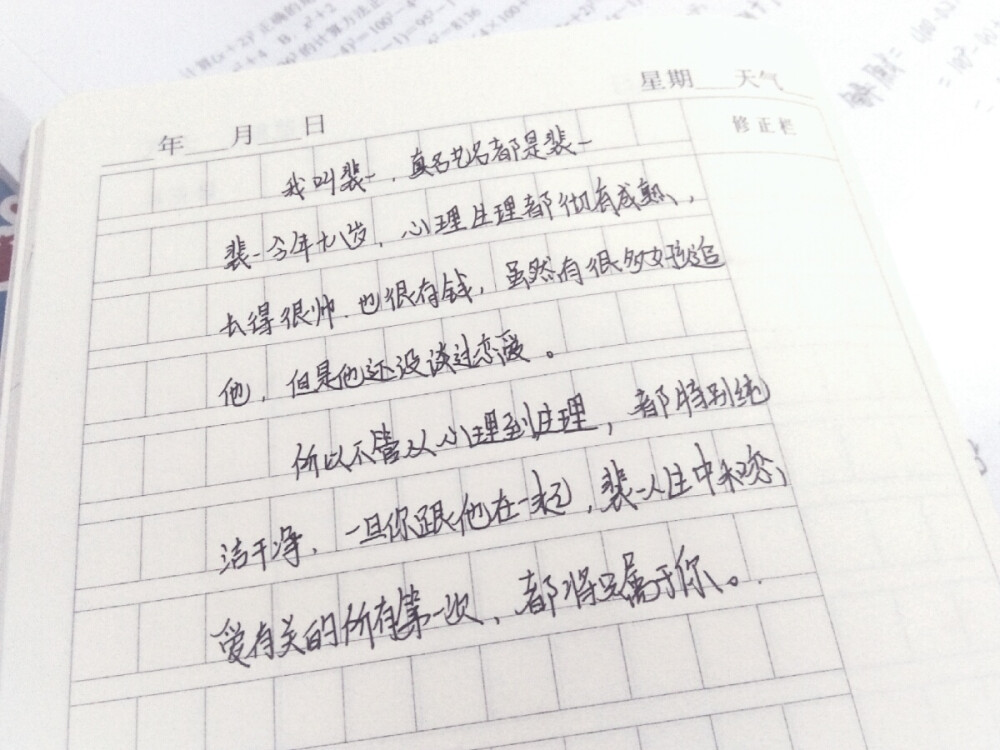 年 月 日
星期 天气
修正栏
我叫裴一，真名艺名都是裴一
裴一今年十八岁，心理生理都有成熟，
长得很帅，也很有钱，虽然有很多女孩追
他，但是他还没谈过恋爱。
所以不管从心理到生理，都特别纯
洁干净，一旦你跟他在一起，裴一人生中和恋
爱有关的所有第一次，都将只属于你。